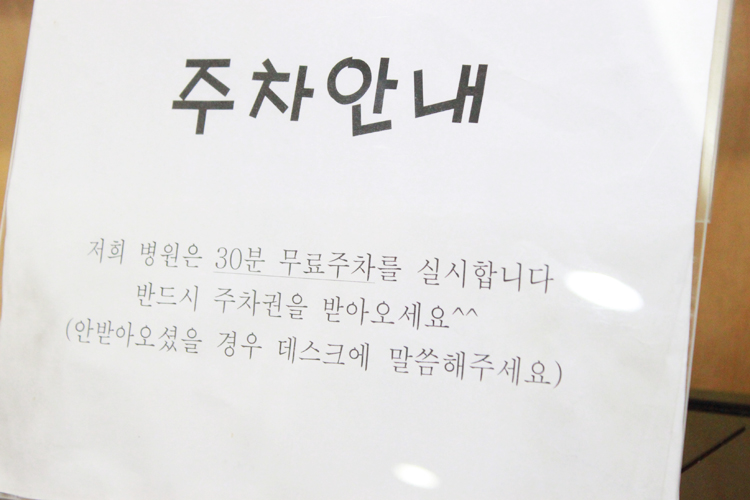 주차안내
저희 병원은 30분 무료주차를 실시합니다
반드시 주차권을 받아오세요^^
(안받아오셨을 경우 데스크에 말씀해주세요)